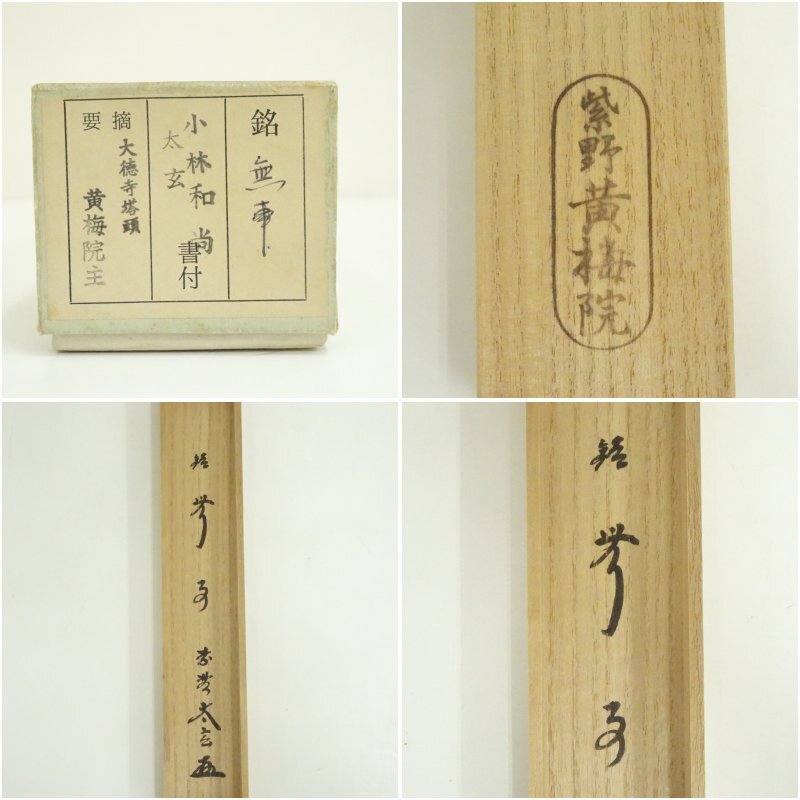 銘 無事
小林和尚
太玄
書付
摘要
大徳寺塔頭
黄梅院主
紫野黄梅院
銘
無事
黄梅太玄
銘
無事